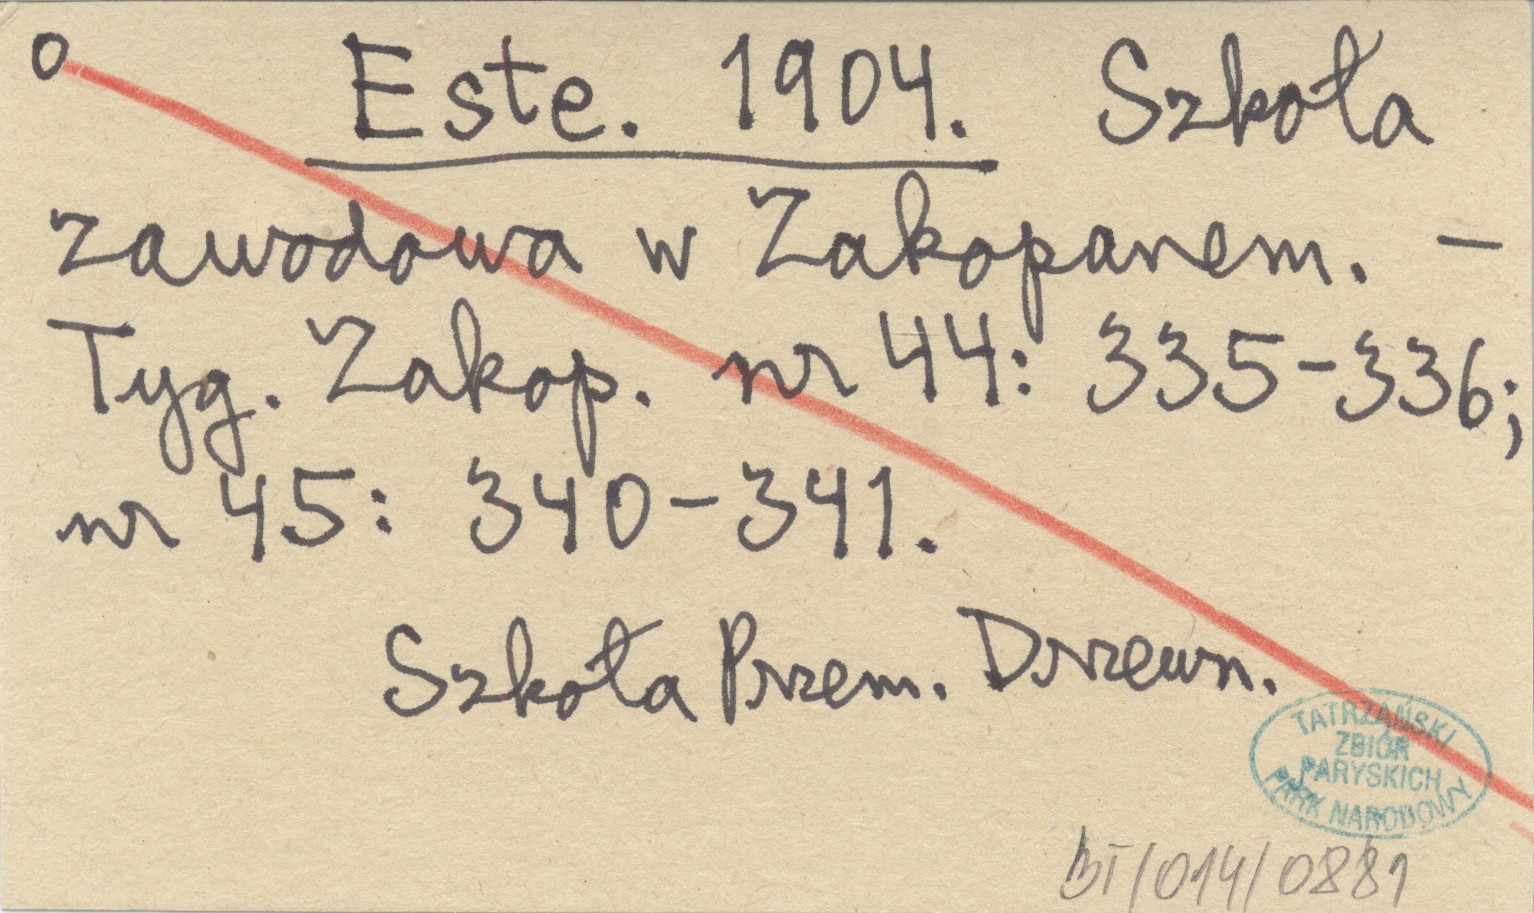 O Este. 1904. Szkoła
zawodowa w Zakopanem. –
Tyg. Zakop. nr 44: 335-336;
nr 45: 340-341.
Szkoła Przem. Drzewn.
TATRZAŃSKI
ZBIÓR
PARYSKICH
PARK NARODOWY
BT/014/0881